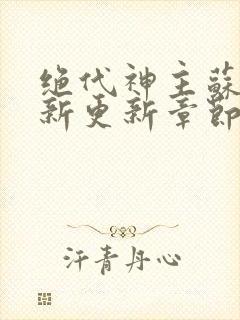 绝代神主蘇
新更新章節
汗青丹心